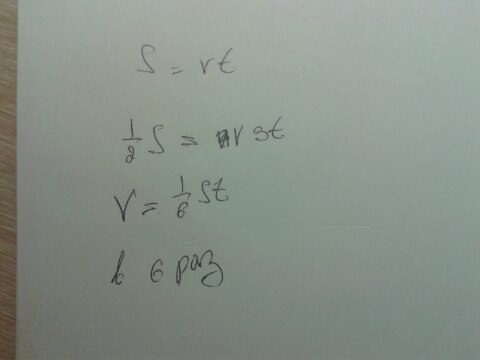 S = vt
1/2 S = v 3t
V = 1/6 St
в 6 раз